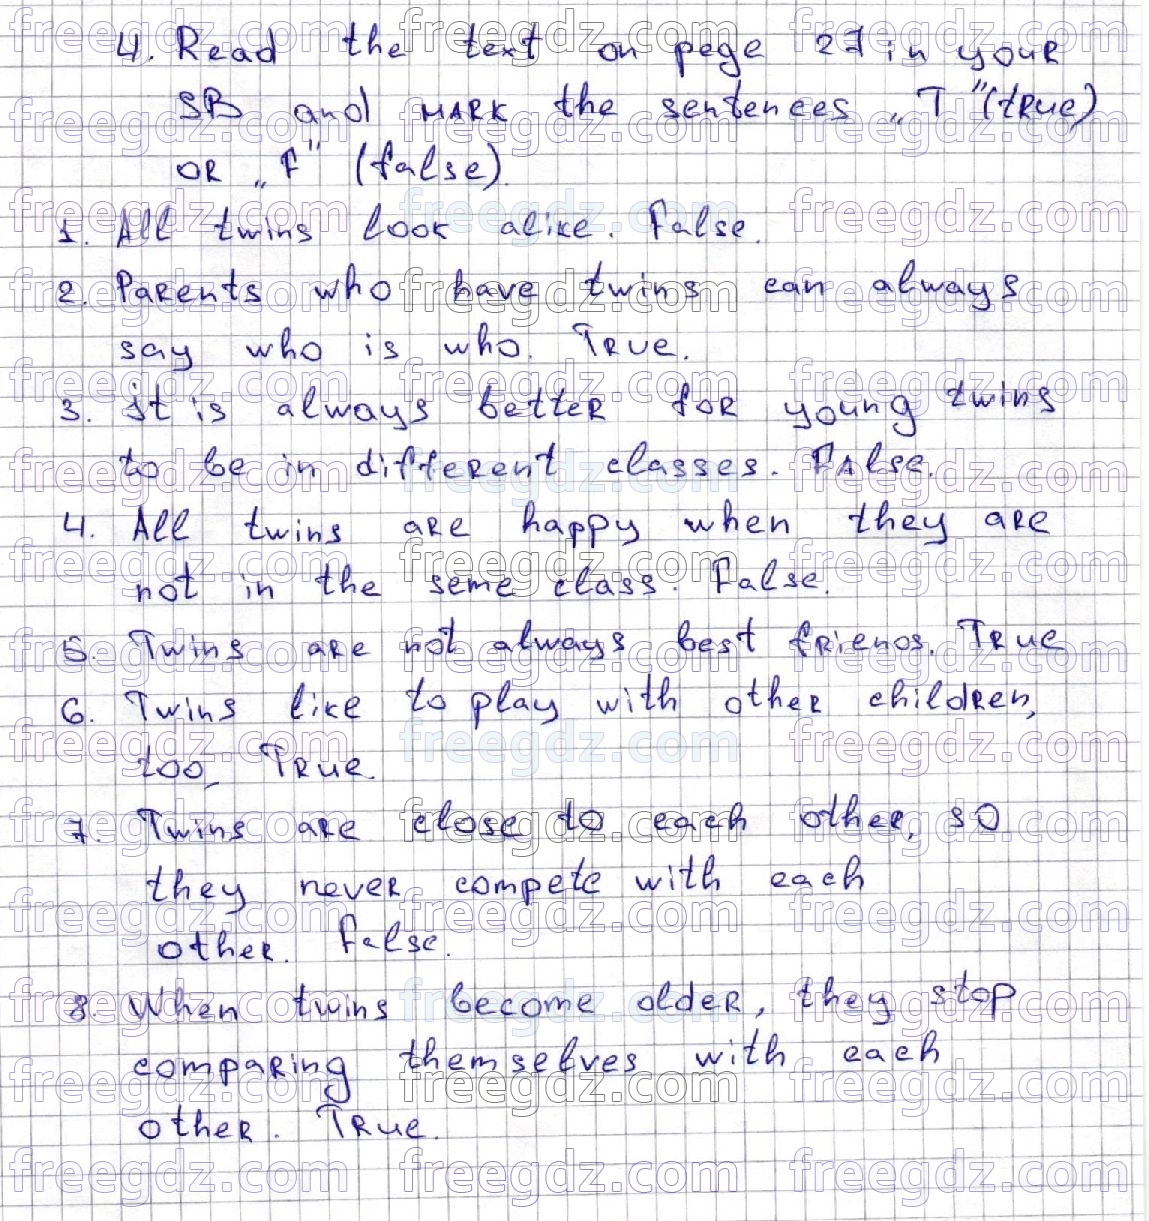 4. Read the text on pege 27 in your
SB and mark the sentences „T" (true)
or „F" (false).
1. All twins look alike. False.
2. Parents who have twins can always
say who is who. True.
3. It is always better for young twins
to be in different classes. False.
4. All twins are happy when they are
not in the seme class. False.
5. Twins are not always best friends. True
6. Twins like to play with other children,
too. True.
7. Twins are close to each other, so
they never compete with each
other. False.
8. When twins become older, they stop
comparing themselves with each
other. True.
freegdz.com